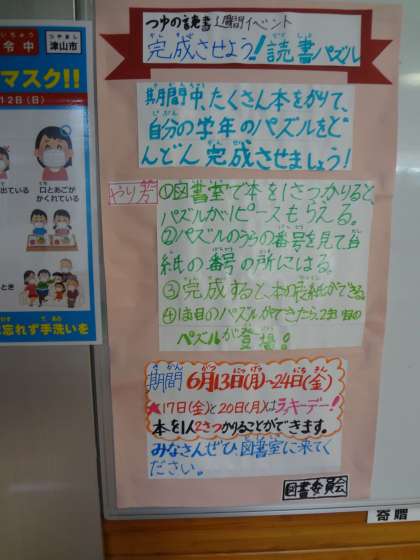 つゆの読書週間イベント
完成させよう！読書パズル
期間中、たくさん本をかりて、
自分の学年のパズルをど
んどん完成させましょう！
やり方
①図書室で本を1さつかりると、
パズルが1ピースもらえる。
②パズルのうらの番号を見て台
紙の番号の所にはる。
③完成すると本の表紙ができる。
④1まい目のパズルができたら、2まい目の
パズルが登場！
期間 6月13日(月)～24日(金)
★17日(金)と20日(月)はラッキーデー！
本を1人2さつかりることができます。
みなさんぜひ図書室に来てく
ださい。
図書委員会
令中
津山市
つやまし
マスク!!
12日(日)
出ている
口とあごが
かくれている
とき
忘れず手洗いを
寄贈